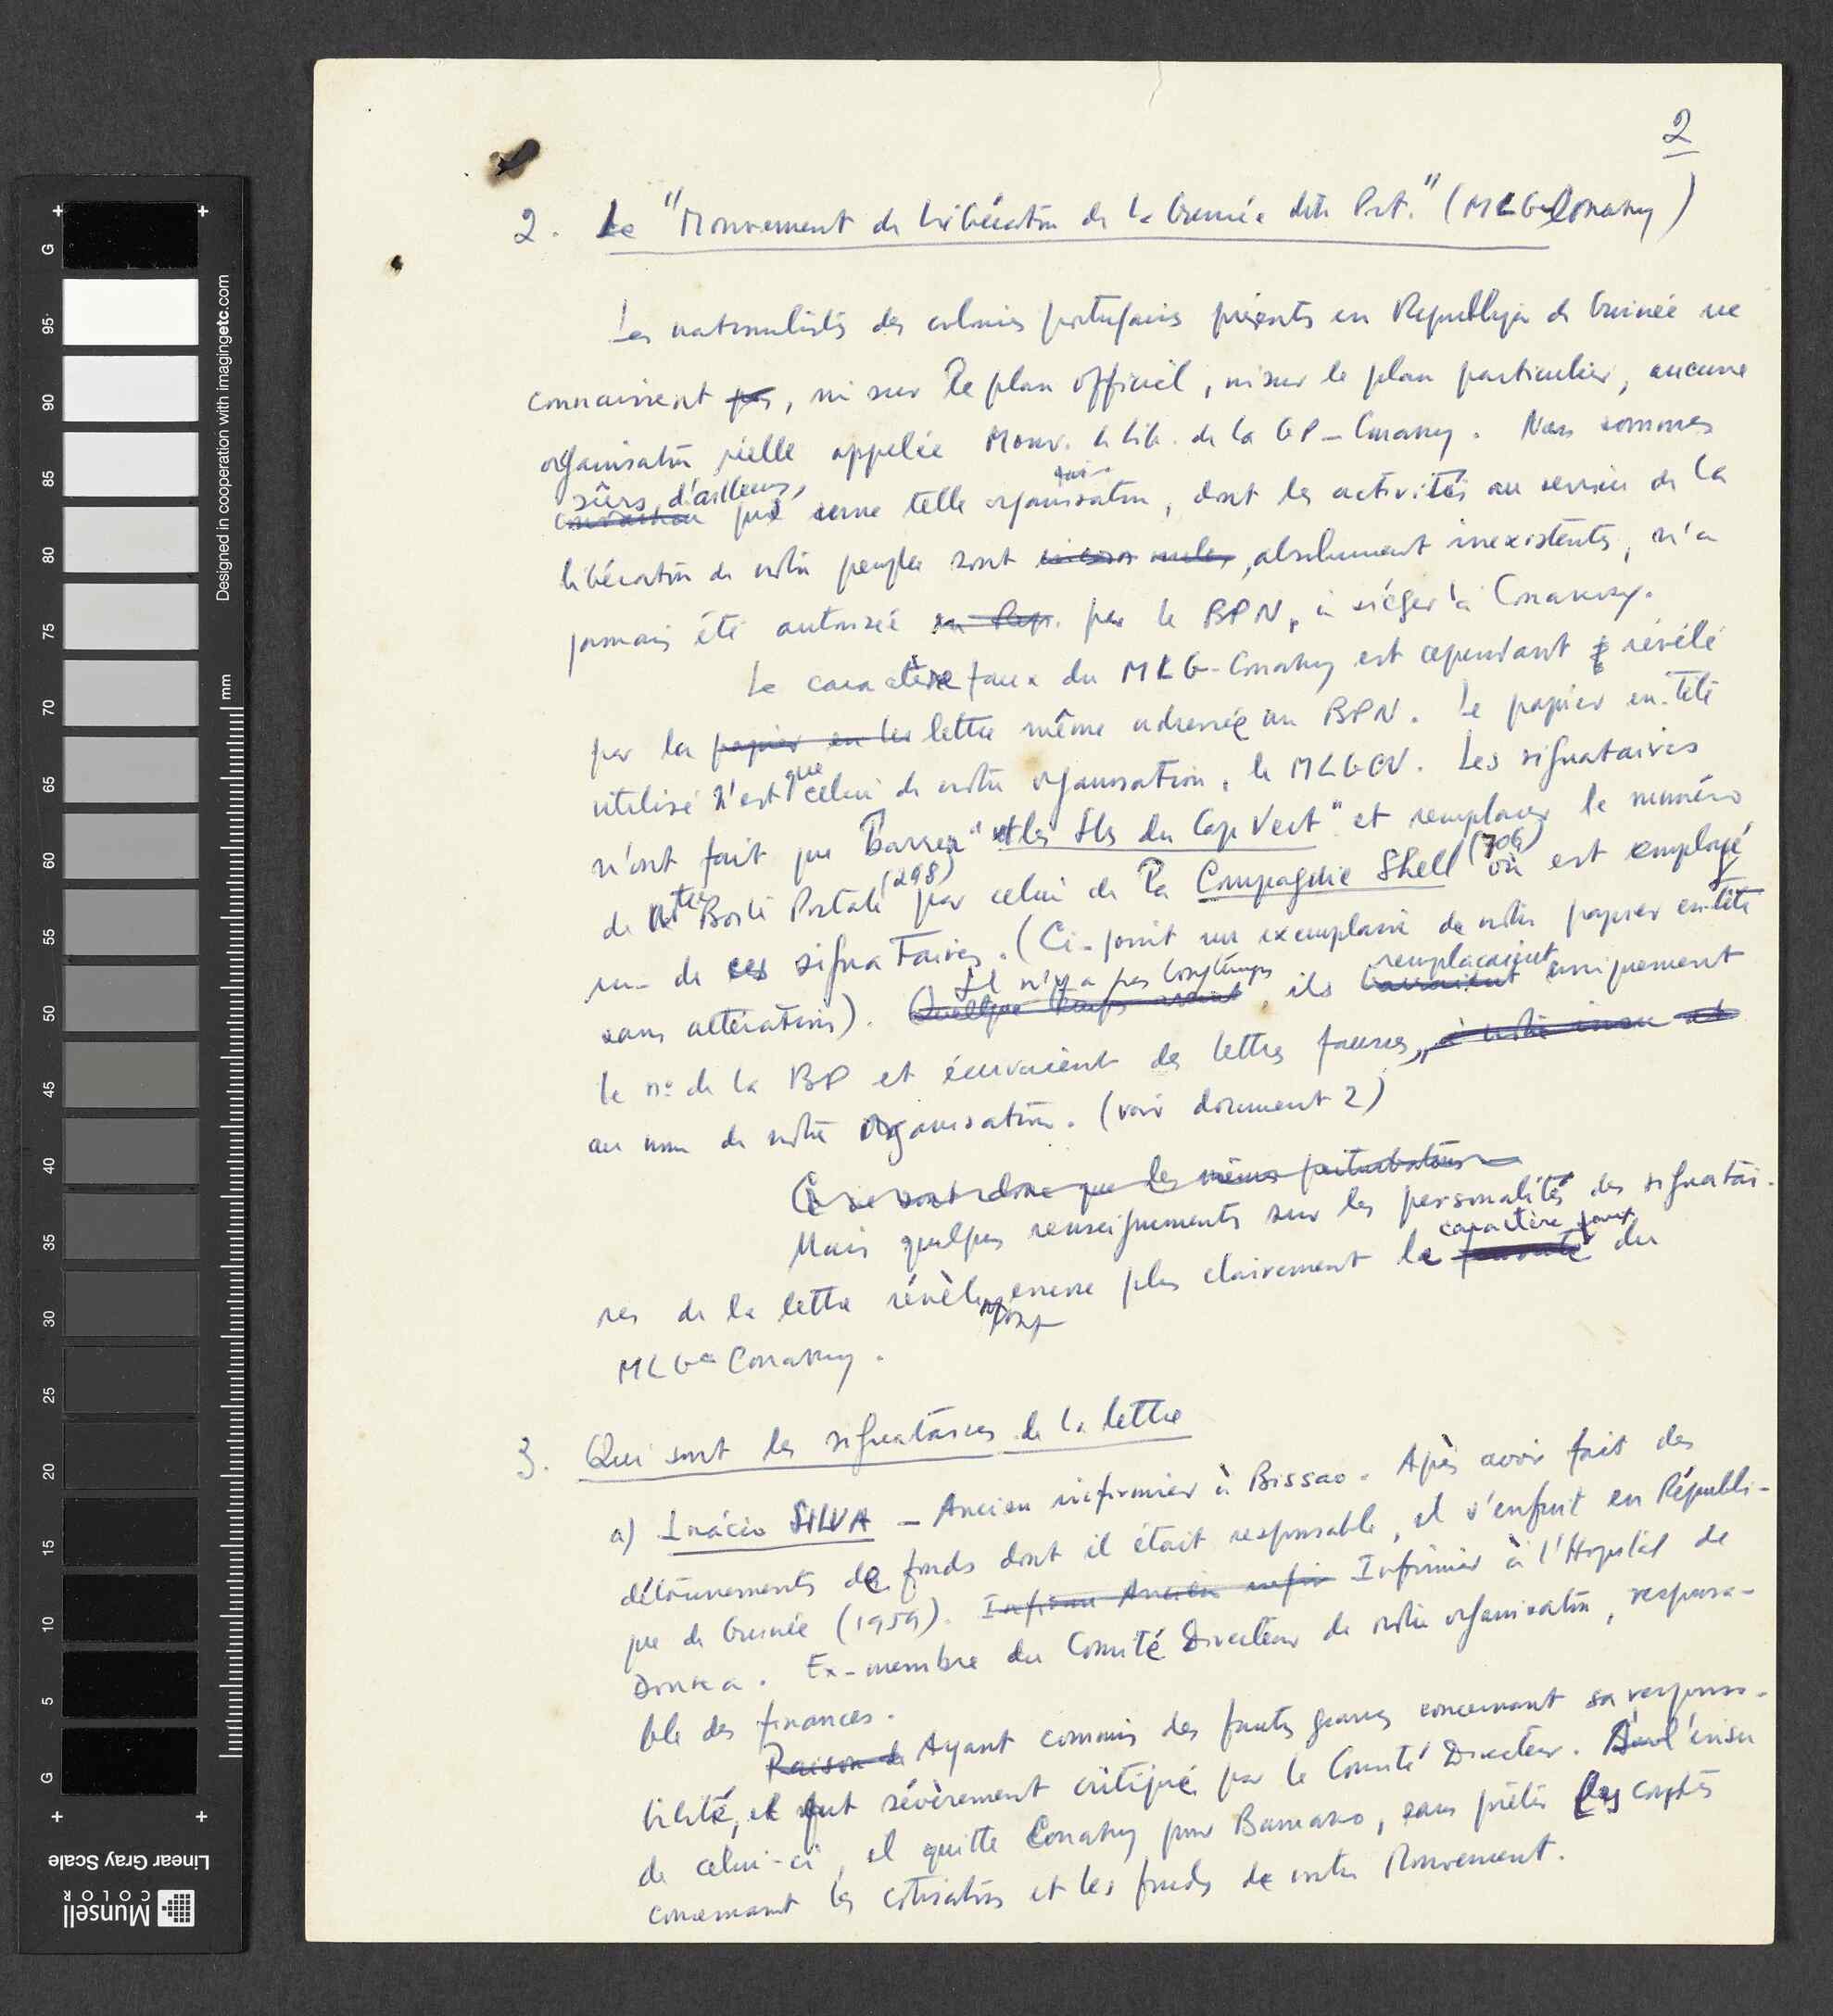 2
2. Le "Mouvement de Libération de la Guinée dite Port." (MLG-Conakry)
Les nationalistes des colonies portugaises présents en République de Guinée ne
connaissent pas, ni sur le plan officiel, ni sur le plan particulier, aucune
organisation réelle appelée Mouv. de Lib. de la GP-Conakry. Nous sommes
sûrs d'ailleurs,
que une telle organisation, dont les activités au service de la
libération de notre peuple sont absolument inexistentes, n'a
jamais été autorisée en Rep. par le BPN, à siéger à Conakry.
Le caractère faux du MLG-Conakry est cependant révélé
par la papier en tes lettre même adressée au BPN. Le papier en-tête
utilisé n'est que celui de notre organisation, le MLGCV. Les signataires
n'ont fait que barrer "et les Iles du Cap Vert" et remplacer le numéro
de notre Boite Postale (298) par celui de la Compagnie Shell (706) où est employé
un de ses signataires. (Ci-joint un exemplaire de notre papier en-tête
sans altérations). Quelque temps avant Il n'y a pas longtemps, ils remplaçaient uniquement
le nº de la BP et écrivaient des lettres fausses, à notre insu et
au nom de notre organisation. (voir document 2)
Ce ne sont donc que les mêmes perturbateurs
Mais quelques renseignements sur les personalités des signatai-
res de la lettre révèleront encore plus clairement le caractère faux du
MLG-Conakry.
3. Qui sont les signataires de la lettre
a) Inácio SILVA - Ancien infirmier à Bissao. Après avoir fait des
détournements de fonds dont il était responsable, il s'enfuit en Républi-
que de Guinée (1959). Infirm Ancien infir Infirmier à l'Hopital de
Donka. Ex-membre du Comité Directeur de notre organisation, responsa-
ble des finances.
Raison de Ayant commis des fautes graves concernant sa responsa-
bilité, il fut sévèrement critiqué par le Comité Directeur. l'insu
de celui-ci, il quitte Conakry pour Bamako, sans prêter les comptes
concernant les cotisations et les fonds de notre Mouvement.
G
95
90
85
80
75
70
65
60
55
50
45
40
35
30
25
20
15
10
5
G
mm
Designed in cooperation with imagingetc.com
Linear Gray Scale
Munsell
COLOR